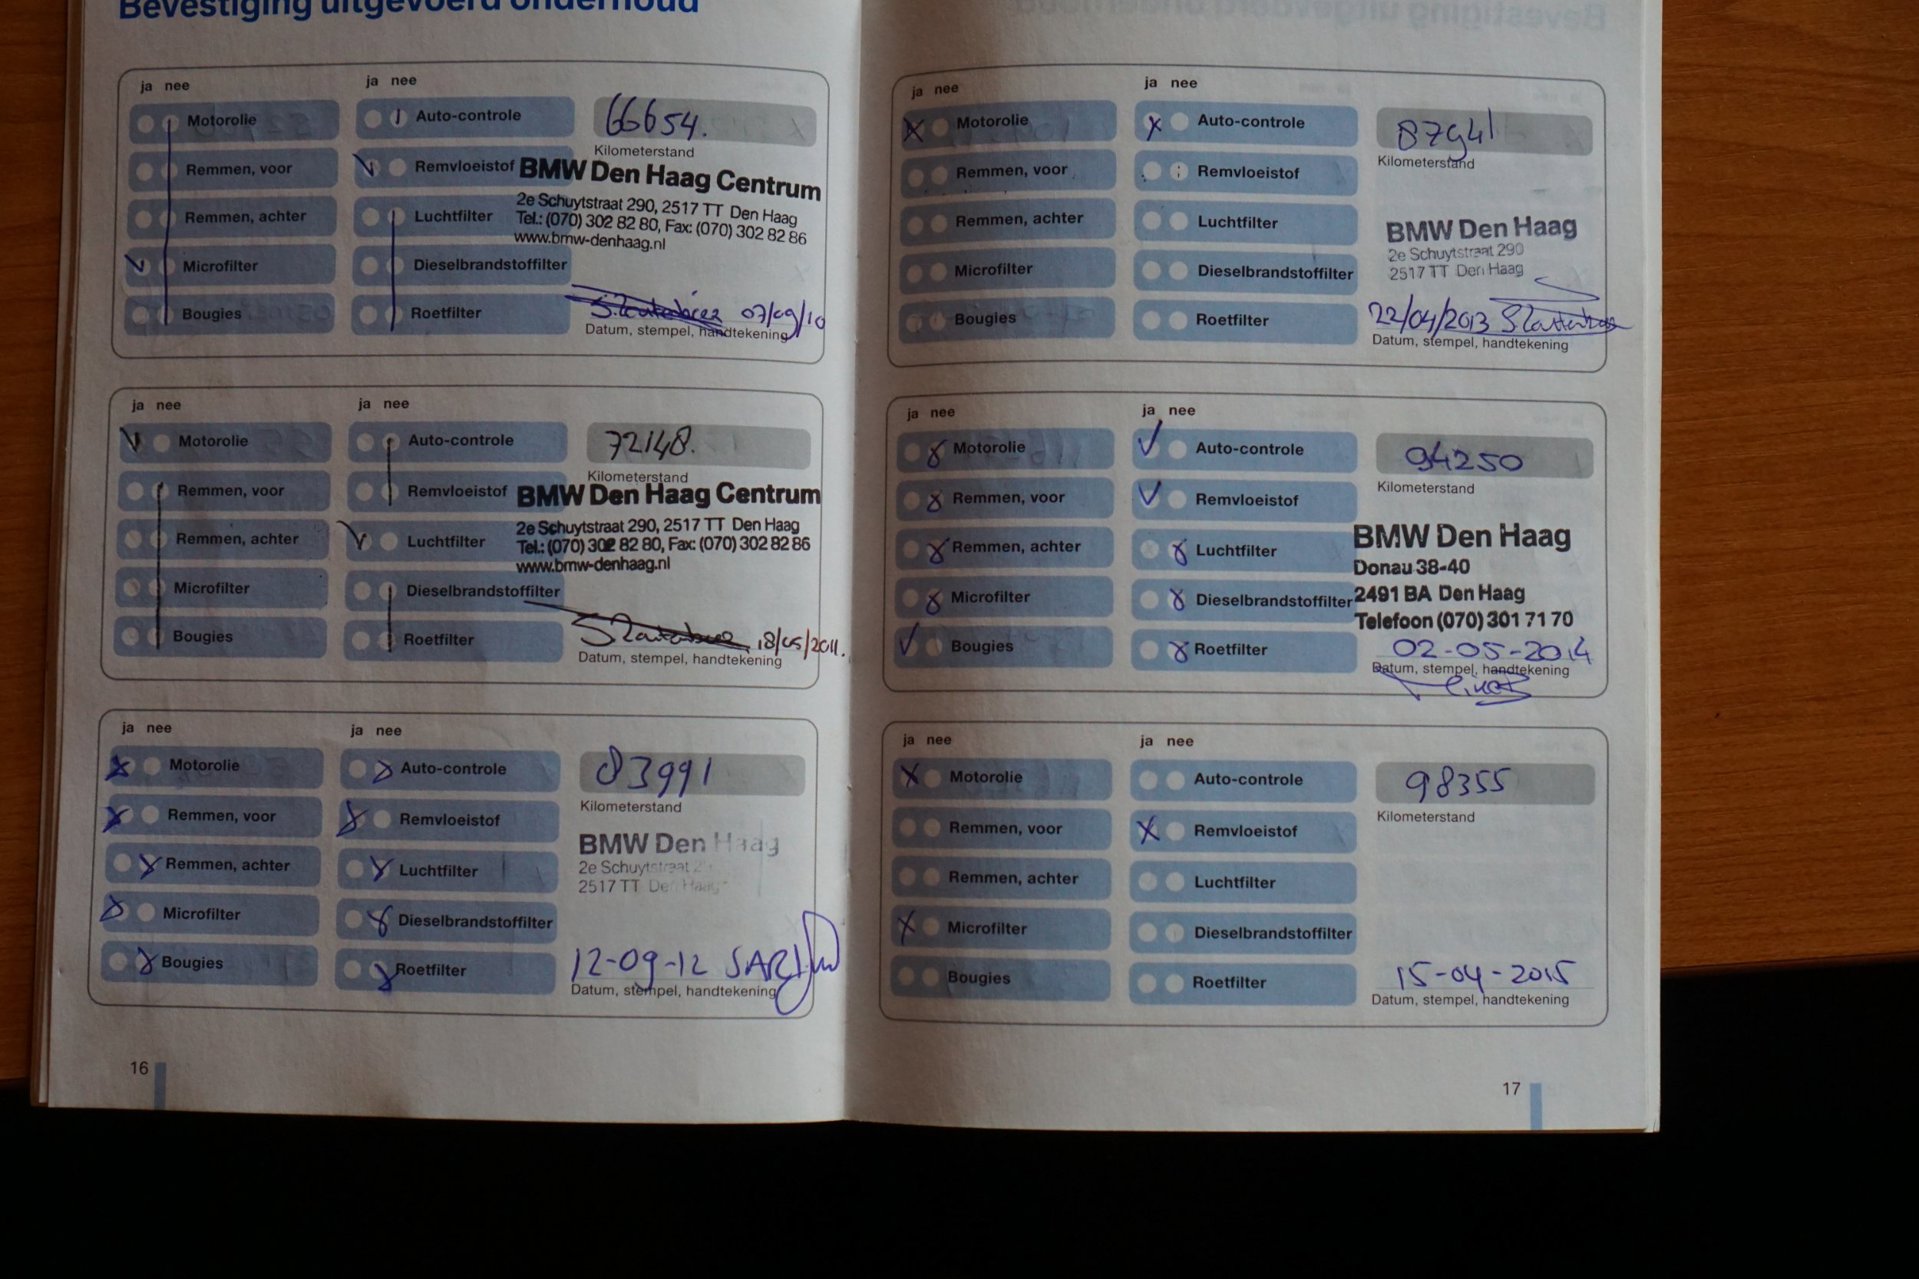 Bevestiging uitgevoerd onderhoud
ja nee
ja nee
Motorolie
Auto-controle
66654.
Kilometerstand
Remmen, voor
Remvloeistof
BMW Den Haag Centrum
2e Schuytstraat 290, 2517 TT Den Haag
Tel.: (070) 302 82 80, Fax: (070) 302 82 86
www.bmw-denhaag.nl
Remmen, achter
Luchtfilter
Microfilter
Dieselbrandstoffilter
Bougies
Roetfilter
07/09/10
Datum, stempel, handtekening
ja nee
ja nee
Motorolie
Auto-controle
72148.
Kilometerstand
Remmen, voor
Remvloeistof
BMW Den Haag Centrum
2e Schuytstraat 290, 2517 TT Den Haag
Tel.: (070) 302 82 80, Fax: (070) 302 82 86
www.bmw-denhaag.nl
Remmen, achter
Luchtfilter
Microfilter
Dieselbrandstoffilter
Bougies
Roetfilter
18/05/2011.
Datum, stempel, handtekening
ja nee
ja nee
Motorolie
Auto-controle
83991
Kilometerstand
Remmen, voor
Remvloeistof
BMW Den Haag
2e Schuytstraat
2517 TT Den Haag
Remmen, achter
Luchtfilter
Microfilter
Dieselbrandstoffilter
Bougies
Roetfilter
12-09-12
Datum, stempel, handtekening
16
ja nee
ja nee
Motorolie
Auto-controle
87941
Kilometerstand
Remmen, voor
Remvloeistof
Remmen, achter
Luchtfilter
BMW Den Haag
2e Schuytstraat 290
2517 TT Den Haag
Microfilter
Dieselbrandstoffilter
Bougies
Roetfilter
22/04/2013
Datum, stempel, handtekening
ja nee
ja nee
Motorolie
Auto-controle
94250
Kilometerstand
Remmen, voor
Remvloeistof
Remmen, achter
Luchtfilter
BMW Den Haag
Donau 38-40
2491 BA Den Haag
Telefoon (070) 301 71 70
Microfilter
Dieselbrandstoffilter
Bougies
Roetfilter
02-05-2014
Datum, stempel, handtekening
ja nee
ja nee
Motorolie
Auto-controle
98355
Kilometerstand
Remmen, voor
Remvloeistof
Remmen, achter
Luchtfilter
Microfilter
Dieselbrandstoffilter
Bougies
Roetfilter
15-04-2015
Datum, stempel, handtekening
17